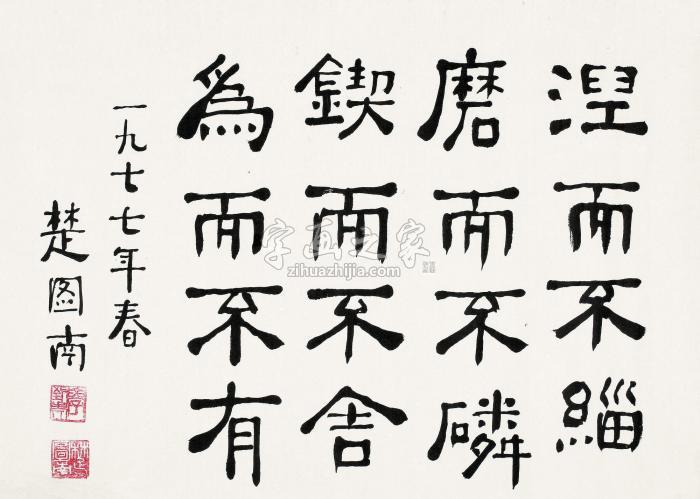 涅而不緇
磨而不磷
鍥而不舍
為而不有
一九七七年春
楚图南
字画之家
zihuazhijia.com